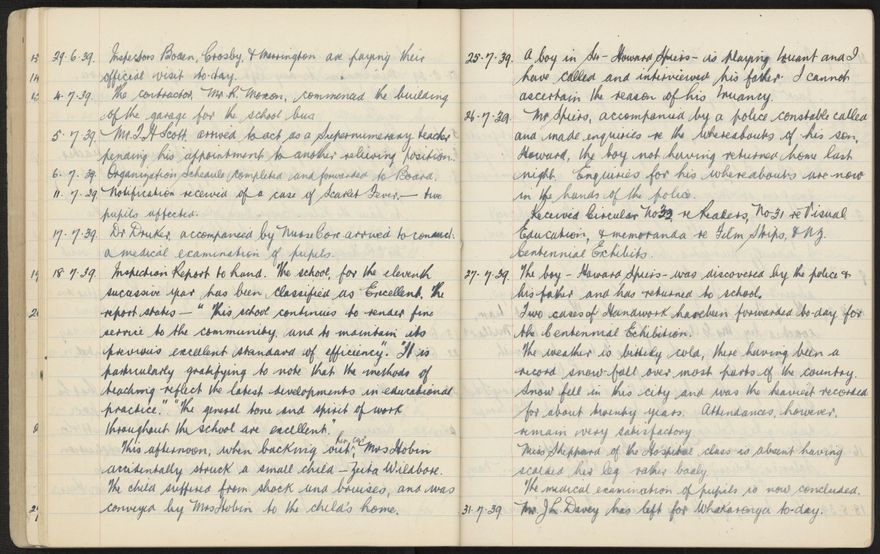 29.6.39. Inspectors Bowen, Crosby, & Merrington are paying their
official visit to-day.
4.7.39. The contractor, Mr. R. Moxon, commenced the building
of the garage for the school bus
5.7.39. Mr. Scott arrived to act as a Supernumerary teacher
pending his appointment to another relieving position.
6.7.39. Organization Schedule completed and forwarded to Board.
11.7.39 Notification received of a case of Scarlet Fever. — two
pupils affected.
17.7.39. Dr Druker, accompanied by Nurse Core arrived to conduct
a medical examination of pupils.
18.7.39. Inspection Report to hand. The school, for the eleventh
successive year has been classified as Excellent. The
report states — "This school continues to render fine
service to the community and to maintain its
previous excellent standard of efficiency". "It is
particularly gratifying to note that the methods of
teaching reflect the latest developments in educational
practice." "The general tone and spirit of work
throughout the school are excellent."
This afternoon, when backing her car, Mrs Hobin
accidentally struck a small child — Zeita Wildbore.
The child suffered from shock and bruises, and was
conveyed by Mrs Hobin to the child's home.
25.7.39. A boy in S4 - Howard Speirs - is playing truant and I
have called and interviewed his father. I cannot
ascertain the reason of his truancy.
26.7.39. Mr. Speirs, accompanied by a police constable called
and made enquiries re the whereabouts of his son,
Howard, the boy not having returned home last
night. Enquiries for his whereabouts are now
in the hands of the police.
Received Circular No 33 re heaters, No 31 re Visual
Education, & memoranda re Film Strips, & N.Z.
Centennial Exhibits.
27.7.39 The boy - Howard Speirs - was discovered by the police &
his father and has returned to school.
Two cases of Handwork have been forwarded to-day for
the Centennial Exhibition.
The weather is bitterly cold, there having been a
record snow-fall over most parts of the country.
Snow fell in this city and was the heaviest recorded
for about twenty years. Attendances, however,
remain very satisfactory
Miss Sheppard of the Hospital class is absent having
scalded her leg rather badly.
The medical examination of pupils is now concluded.
31.7.39 Mr. J L Davey has left for Whakarongo to-day.